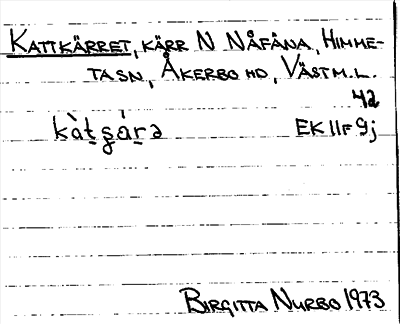 KATTKÄRRET, KÄRR N NÅFÅNA, HIMME-
TA SN, ÅKERBO HD, VÄSTM. L.
42
kàt̠g̠ár̠ə EK 11F 9j
BIRGITTA NURBO 1973